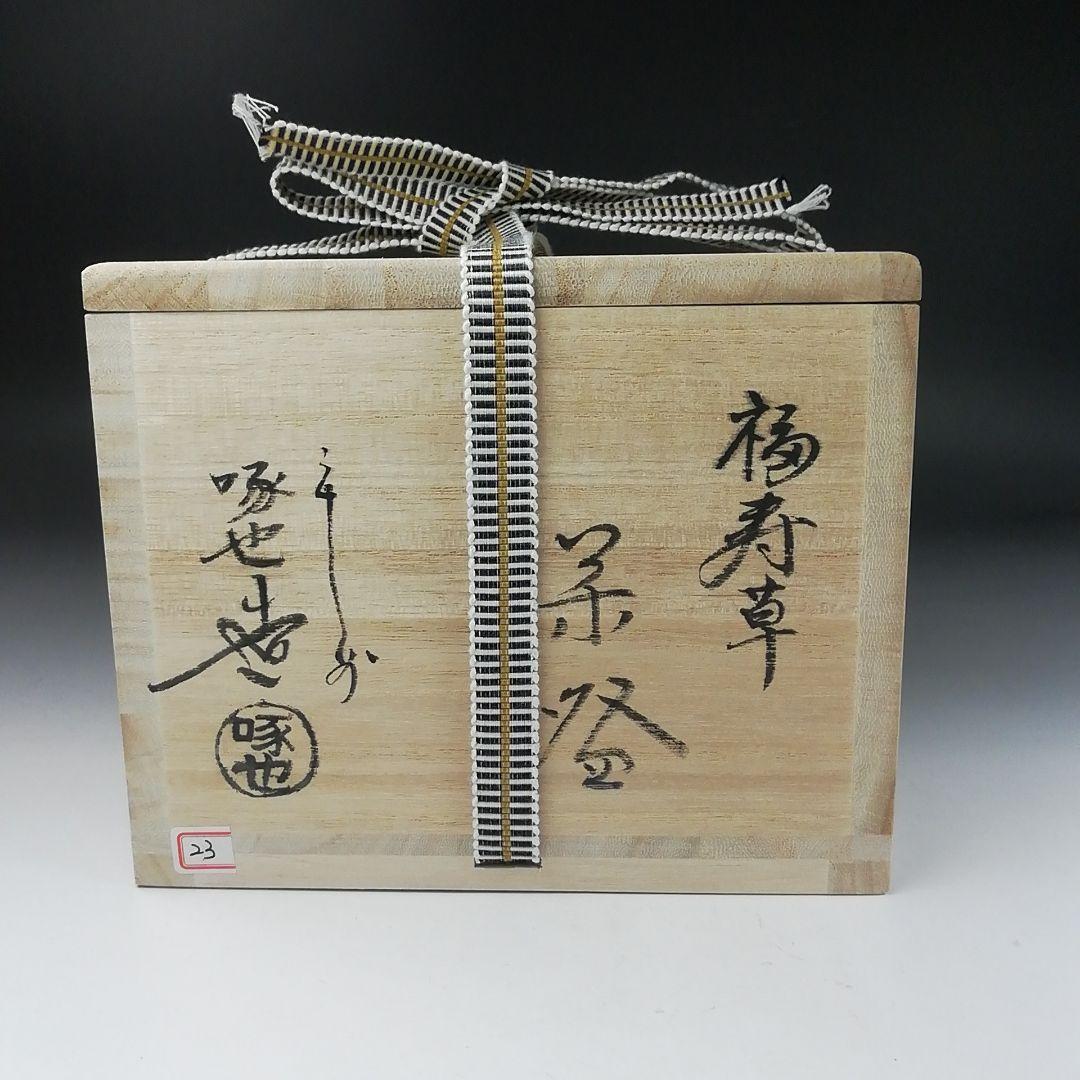 福寿草
茶碗
啄也造
啄也
23